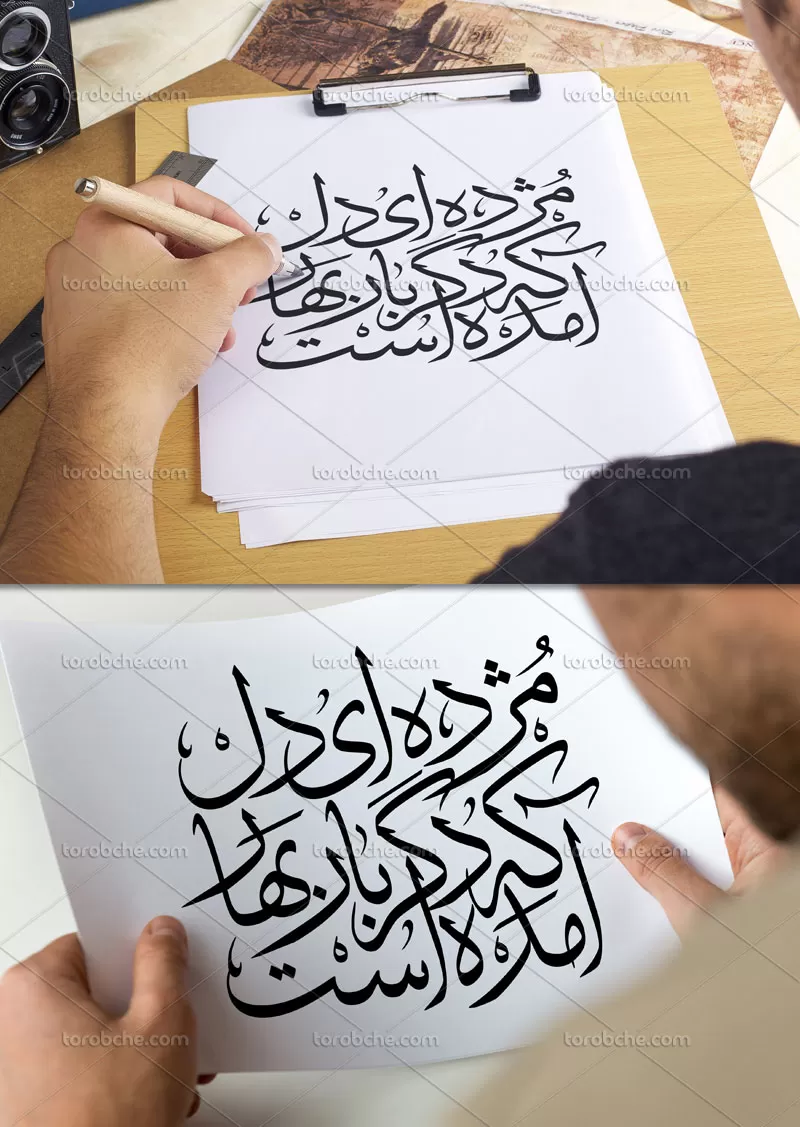 torobche.com torobche.com torobche.com
مُژده ای دل
که دگر بار بهار
torobche.com torobche.com torobche.com
امده است
torobche.com torobche.com torobche.com
torobche.com torobche.com torobche.com
مُژده ای دل
که دگر بار بهار
torobche.com torobche.com torobche.com
امده است
torobche.com torobche.com torobche.com